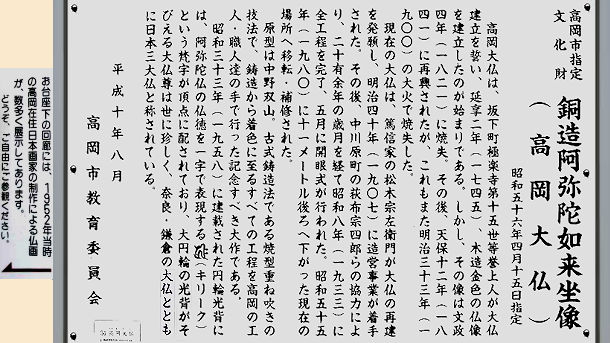 高岡市指定
文化財
銅造阿弥陀如来坐像
(高岡大仏)
昭和五十六年四月十五日指定
高岡大仏は、坂下町極楽寺第十五世等誉上人が大仏
建立を誓い、延享二年(一七四五)、木造金色の仏像
を建立したのが始まりである。しかし、その像は文政
四年(一八二一)に焼失、その後、天保十二年(一八
四一)に再興されたが、これもまた明治三十三年(一
九〇〇)の大火で焼失した。
現在の大仏は、篤信家の松木宗左衛門が大仏の再建
を発願し、明治四十年(一九〇七)に造営事業が着手
された。その後、中川原町の荻布宗四郎らの協力によ
り、二十有余年の歳月を経て昭和八年(一九三三)に
全工程を完了、五月に開眼式が行われた。昭和五十五
年(一九八〇)に十一メートル後ろへ下がった現在の
場所へ移転・補修された。
原型は中野双山。古式鋳造法である焼型重ね吹きの
技法で、鋳造から着色に至るすべての工程を高岡の工
人・職人達の手で行った記念すべき大作である。
昭和三十三年(一九五八)に建載された円輪光背に
は、阿弥陀仏の仏徳を一字で表現する(キリーク)
という梵字が頂点に配されており、大円輪の光背がそ
びえる大仏尊は世に珍しく、奈良、鎌倉の大仏ととも
に日本三大仏と称されている。
平成十年八月
高岡市教育委員会
お台座下の回廊には、1952年当時
の高岡在住日本画家の制作による仏画
が、数多く展示してあります。
どうぞ、ご自由にご参観ください。